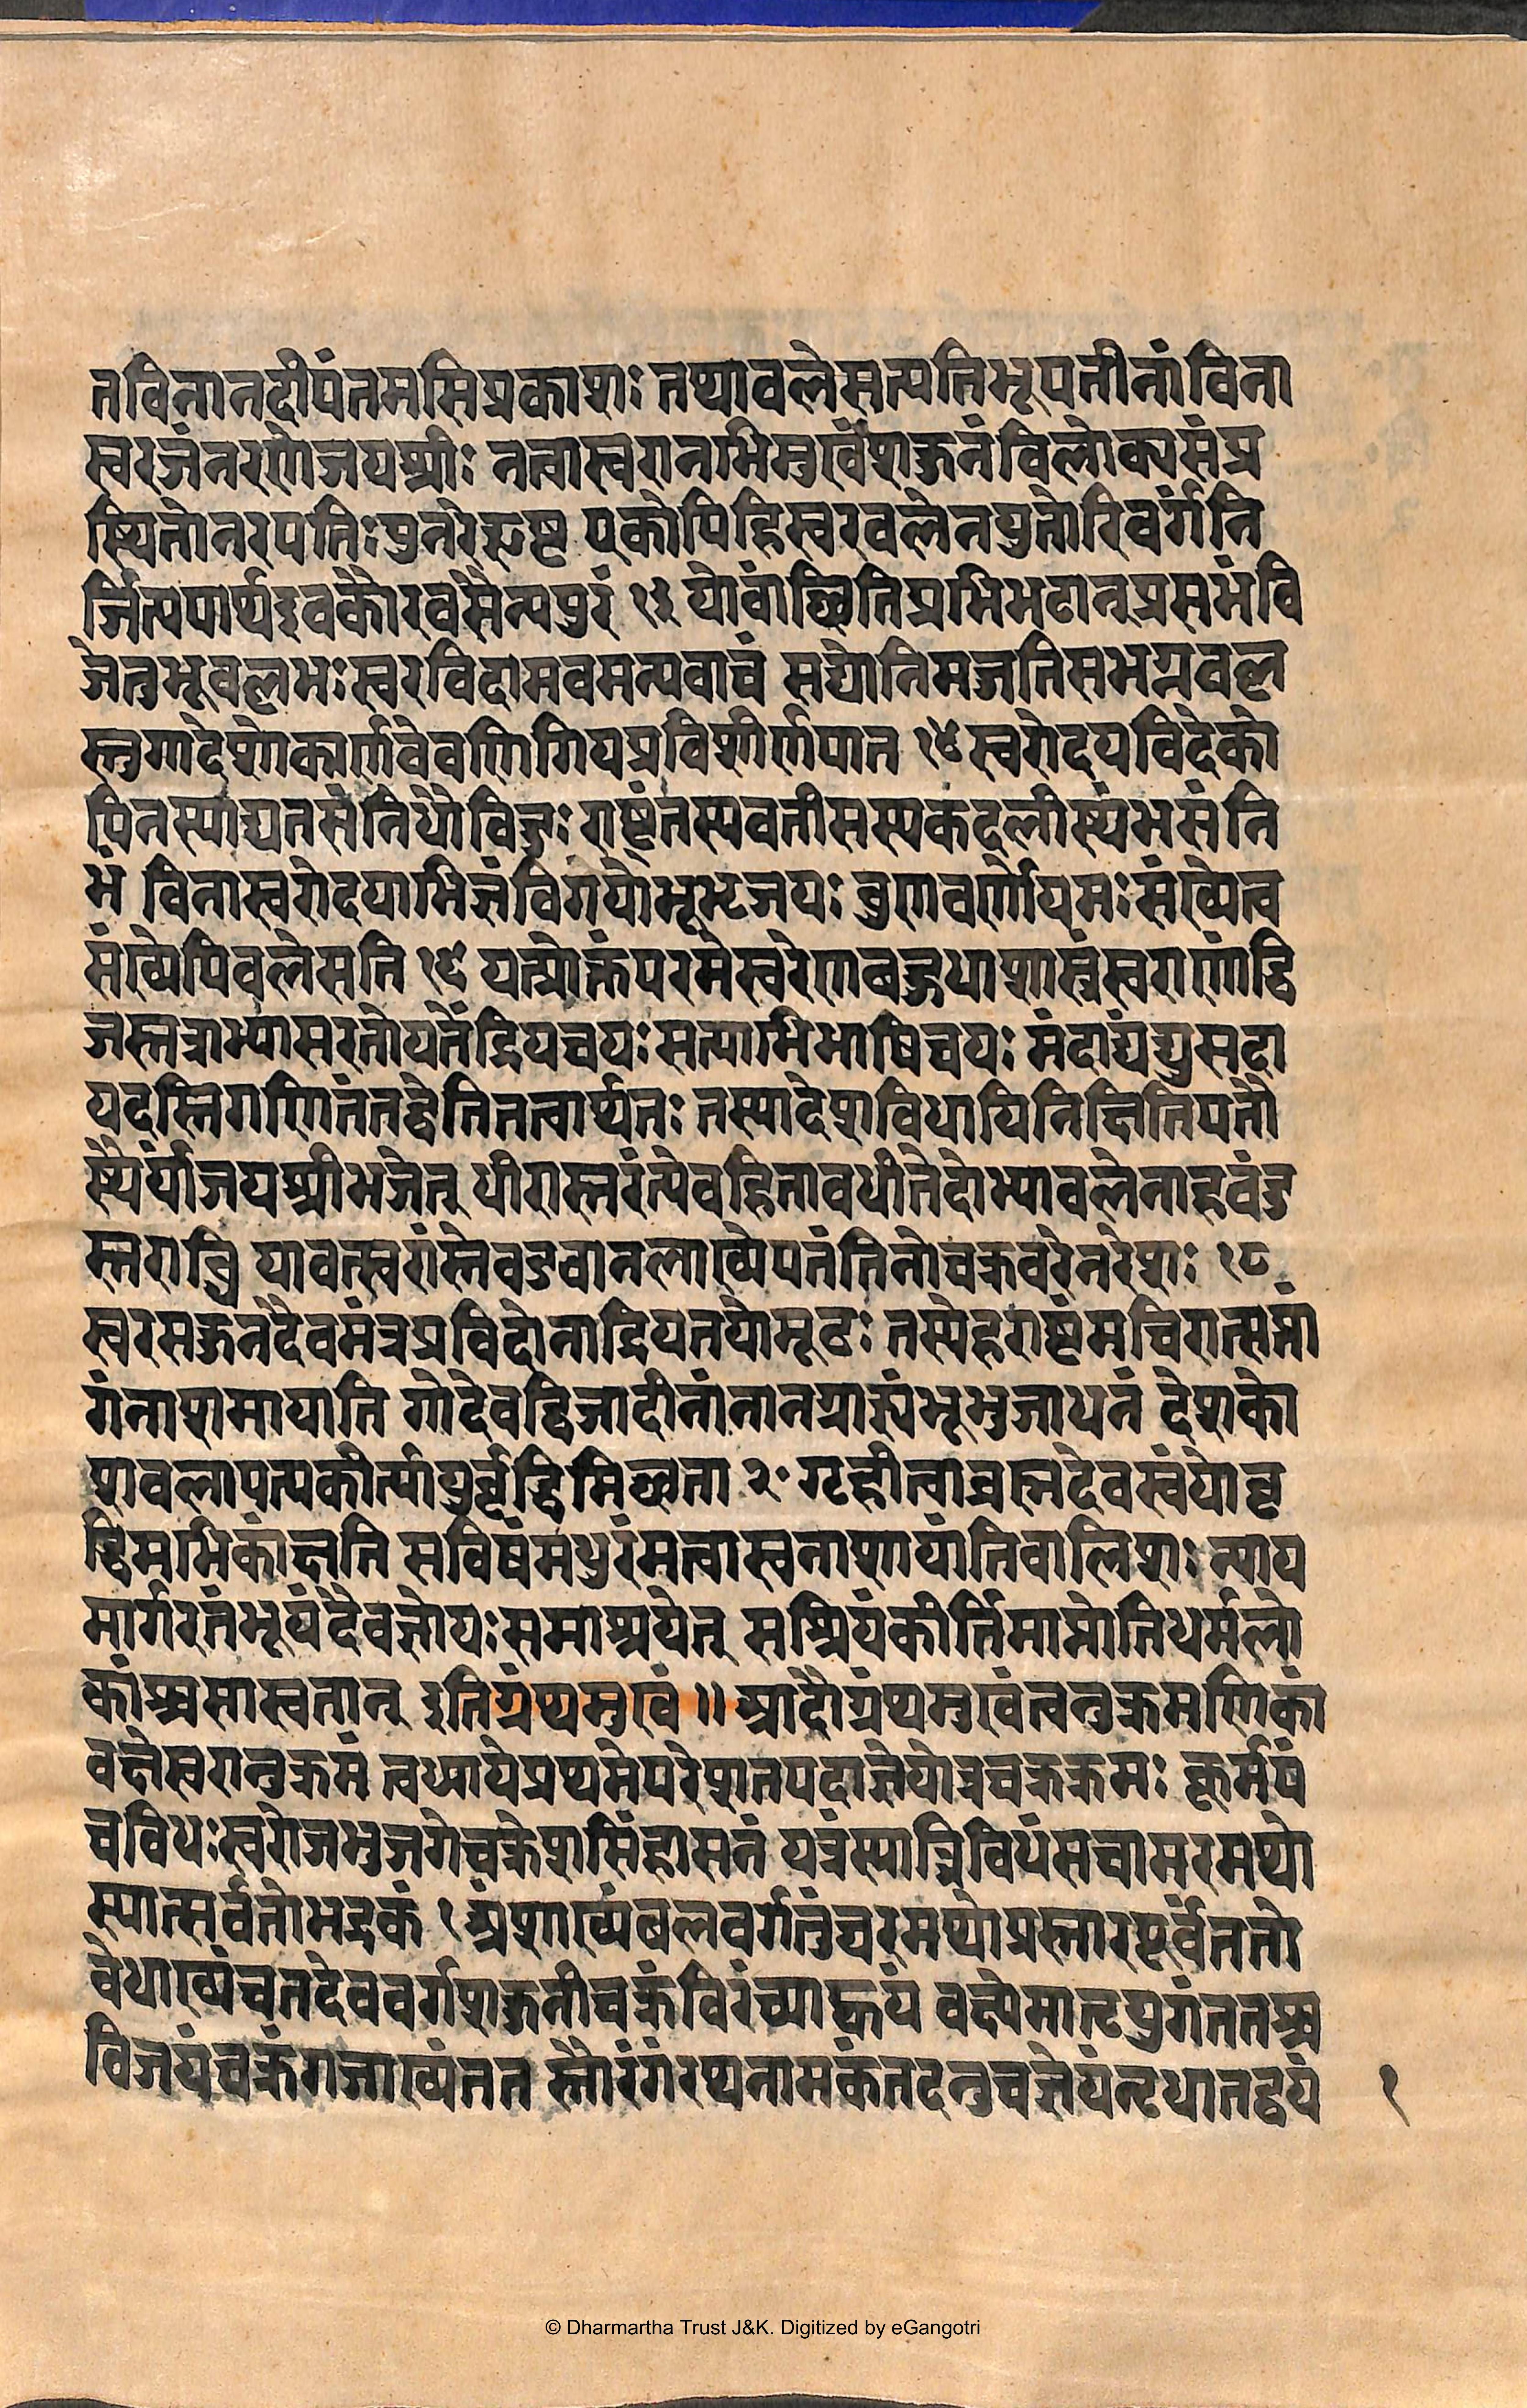 तविनानदीपंतमसिप्रकाशः तथावलेसत्यतिभूपतीनांविना
स्वरज्ञंनरणेजयश्रीः नत्वास्वरानभिमुखंशकुनंविलोक्यसंप्र
स्थितोनरपतिः एकोपिहिस्वरवलेनयुतोरिवर्गंनि
र्जित्यपार्थइवकौरवसैन्यपुरं १३ योवांछितिप्रभिभटान्प्रसभंवि
जेतुभूवल्लभःस्वरविदामवमत्यवाचं सद्योनिमज्जतिसभग्नवल
स्तुगादेशोकार्णवेवणिगिवप्रविशीर्णपोत १४ स्वरोदयविदेको
पिनस्याद्यतसंनिधौविज्ञः राष्ट्रंतस्यवनीसस्यकदलीस्थंभसंनि
भं विनास्वरोदयाभिज्ञंविगयोभूभृजयः घुणवर्णोपमःसंख्येत्व
संख्येपिवलेसति १६ यत्प्रोक्तंपरमेस्वरेणवहुधाशास्त्रंस्वराणांद्वि
जस्तत्राभ्यासरतोयतेंद्रियचयः सत्याभिभाषिचयः मंदाद्यद्युसदा
यदस्तिगणितंतद्वेतितत्वार्थतः तस्यादेशविधायिनिक्षितिपतौ
स्थैर्यांजयश्रीभजेत् धीरास्तरंत्येवहिनावधीतेदोभ्यावलेनाहवंङ
स्तराब्धि यावत्स्वरांस्तेवडवानलाख्येपतंतिनोचक्रवरेनरेशः १८
स्वरसकुनंदैवमंत्रप्रविदोनाद्रियतयोमूढः तस्येहराष्ट्रमचिरात्समां
गंनाशमायाति गोदेवद्विजादीनांनानग्राह्यंभूभुजाधनं देशको
शवलापत्यकीर्त्यायुर्वृद्धिमिछता २॰ गृहीत्वाब्रह्मदेवस्वंयोवृ
द्धिमभिकांक्षति सविषंमधुरंमत्वास्वनाशायांतिवालिशः न्याय
मार्गरतंभूपंदैवज्ञोयःसमाश्रयेत् सश्रियंकीर्त्तिमाप्नोतिधर्मलो
कांश्चसास्वतान् इतिग्रंथमुखं ॥ आदौग्रंथमुखंत्वनुक्रमणिकां
वक्षेस्वरानुक्रमं त्वध्यायेप्रथमेपरेशतपदाज्ञेयोत्रचक्रक्रमः कूर्मपं
चविधःस्वरोजभुजगेचक्रेशसिंहासनं यत्रंस्यात्त्रिविधंसचामरमथो
स्यात्सर्वतोभद्रकं १ अंशाख्यंबलवर्गतुंवरमथोप्रस्तारपूर्वंततो
वेधाख्यंचतदेववर्गशकुनीचक्रंविरंच्याह्वयं वक्ष्येमातृपुगंततश्च
विजयंचक्रंगजाख्यंतत स्तौरंगंरथनामकंतदनुचज्ञेयंनृधातद्वयं
१
© Dharmartha Trust J&K. Digitized by eGangotri